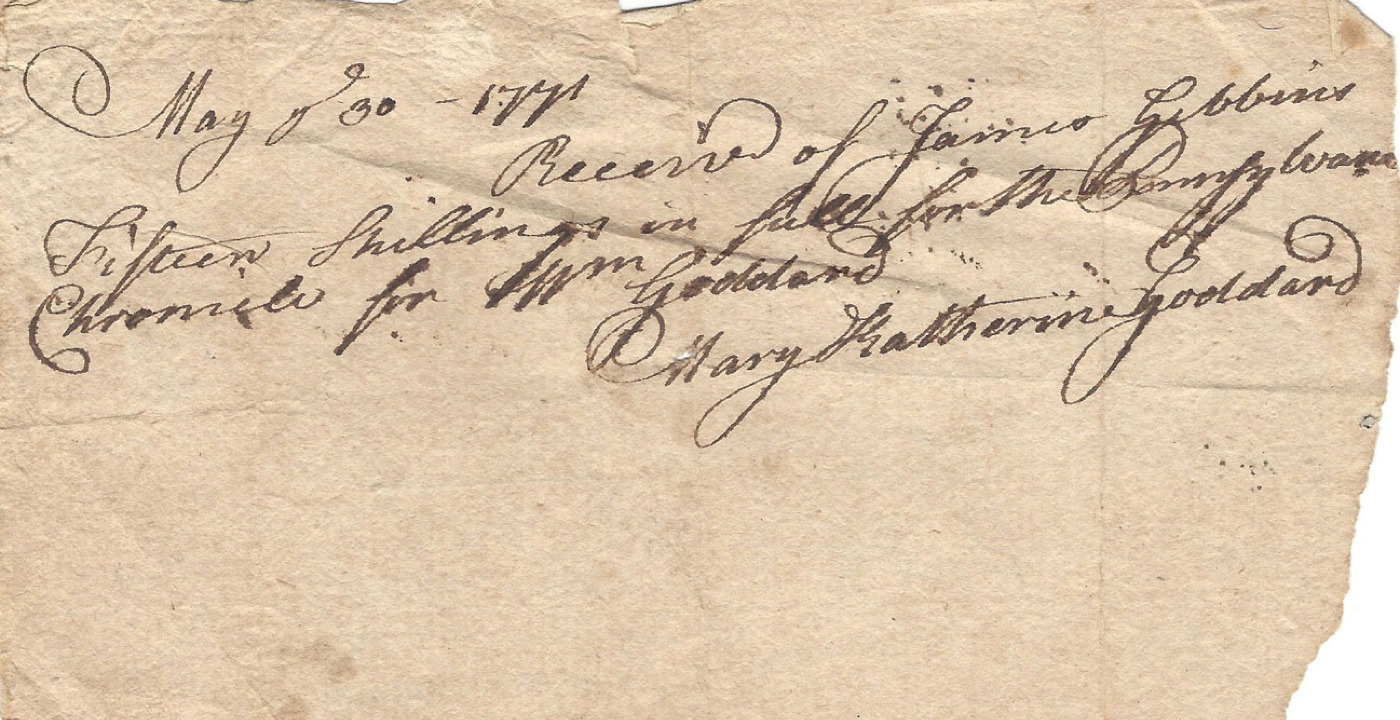 May ye 30 - 1771
Receivd of James Gibbins
Fifteen Shillings in full for the Pennsylvania
Chronicle for Wm Goddard
by
Mary Katherine Goddard